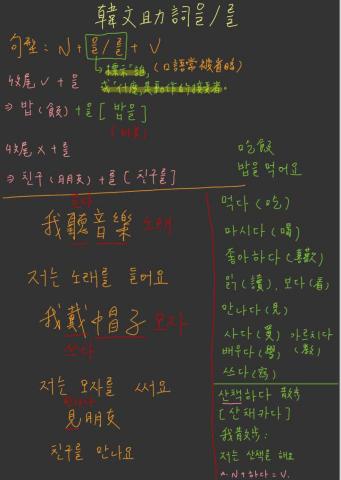 韓文助詞을/를
句型：N + 을/를 + V
↳標示"誰,(口語常被省略)
或"什麼,是動作的接受者。
收尾 ∨ + 을
⇒ 밥 (飯) + 을 [ 밥을 ]
收尾 × + 를
⇒ 친구 (朋友) + 를 [ 친구를 ]
吃飯
밥을 먹어요
듣다
我聽音樂 노래
저는 노래를 들어요
我戴帽子 모자
쓰다
저는 모자를 써요
見朋友
친구를 만나요
먹다 (吃)
마시다 (喝)
좋아하다 (喜歡)
읽 (讀), 보다 (看)
만나다 (見)
사다 (買) 가르치다 (教)
배우다 (學)
쓰다 (寫)
산책하다 散步
[ 산채카다 ]
我散步：
저는 산책을 해요
*. N + 하다 = V.